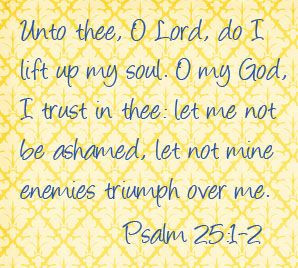 Unto thee, O Lord, do I
lift up my soul. O my God,
I trust in thee: let me not
be ashamed, let not mine
enemies triumph over me.
Psalm 25:1-2